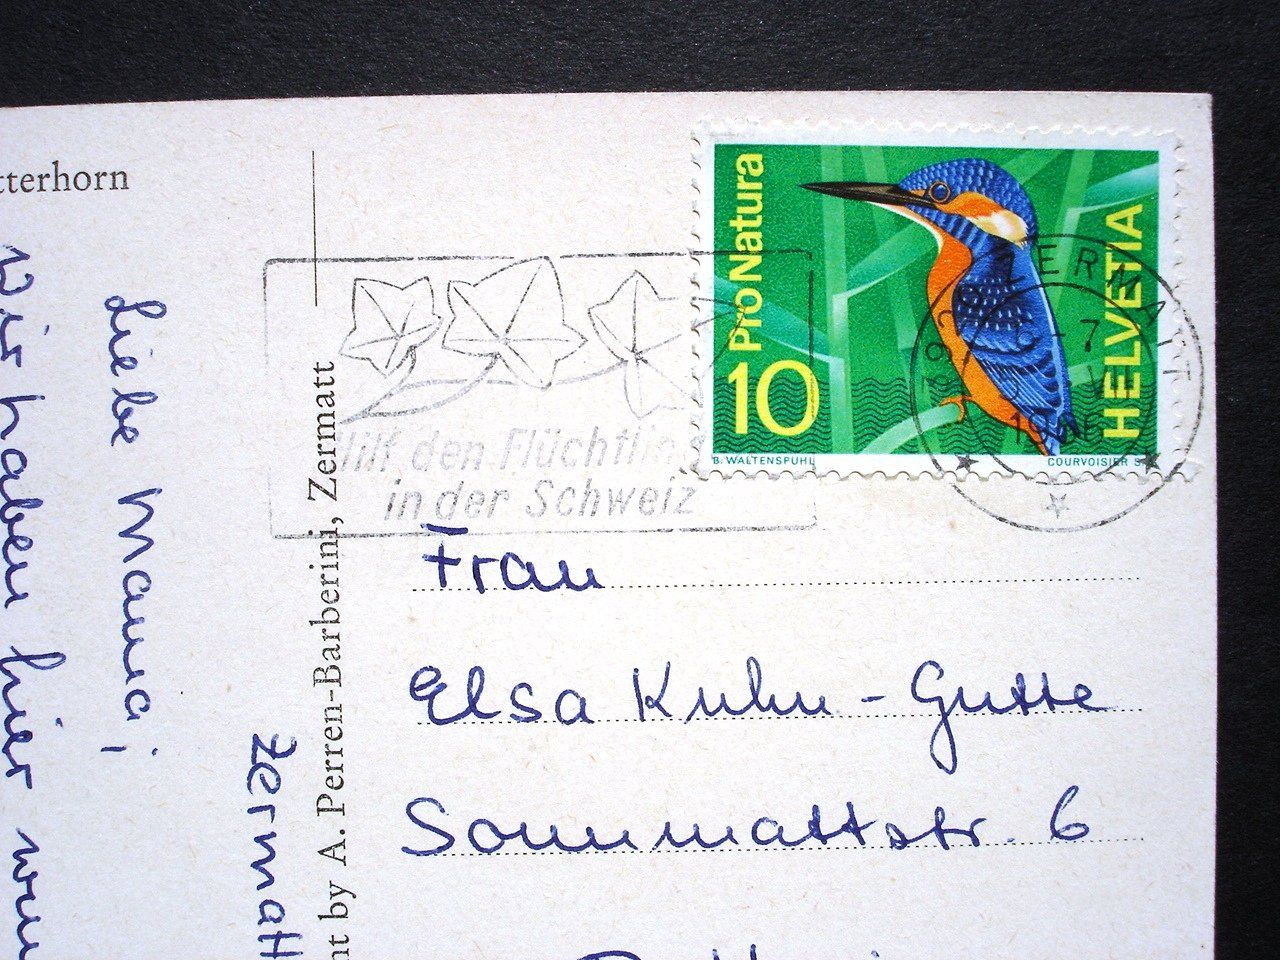 tterhorn
Pro Natura
10
HELVETIA
B. WALTENSPUHL
COURVOISIER S
ZERMATT
Hilf den Flüchtling
in der Schweiz
nt by A. Perren-Barberini, Zermatt
Zermatt
Liebe Mama,
Wir haben hier
Frau
Elsa Kuhn-Gutte
Sonnmattstr. 6